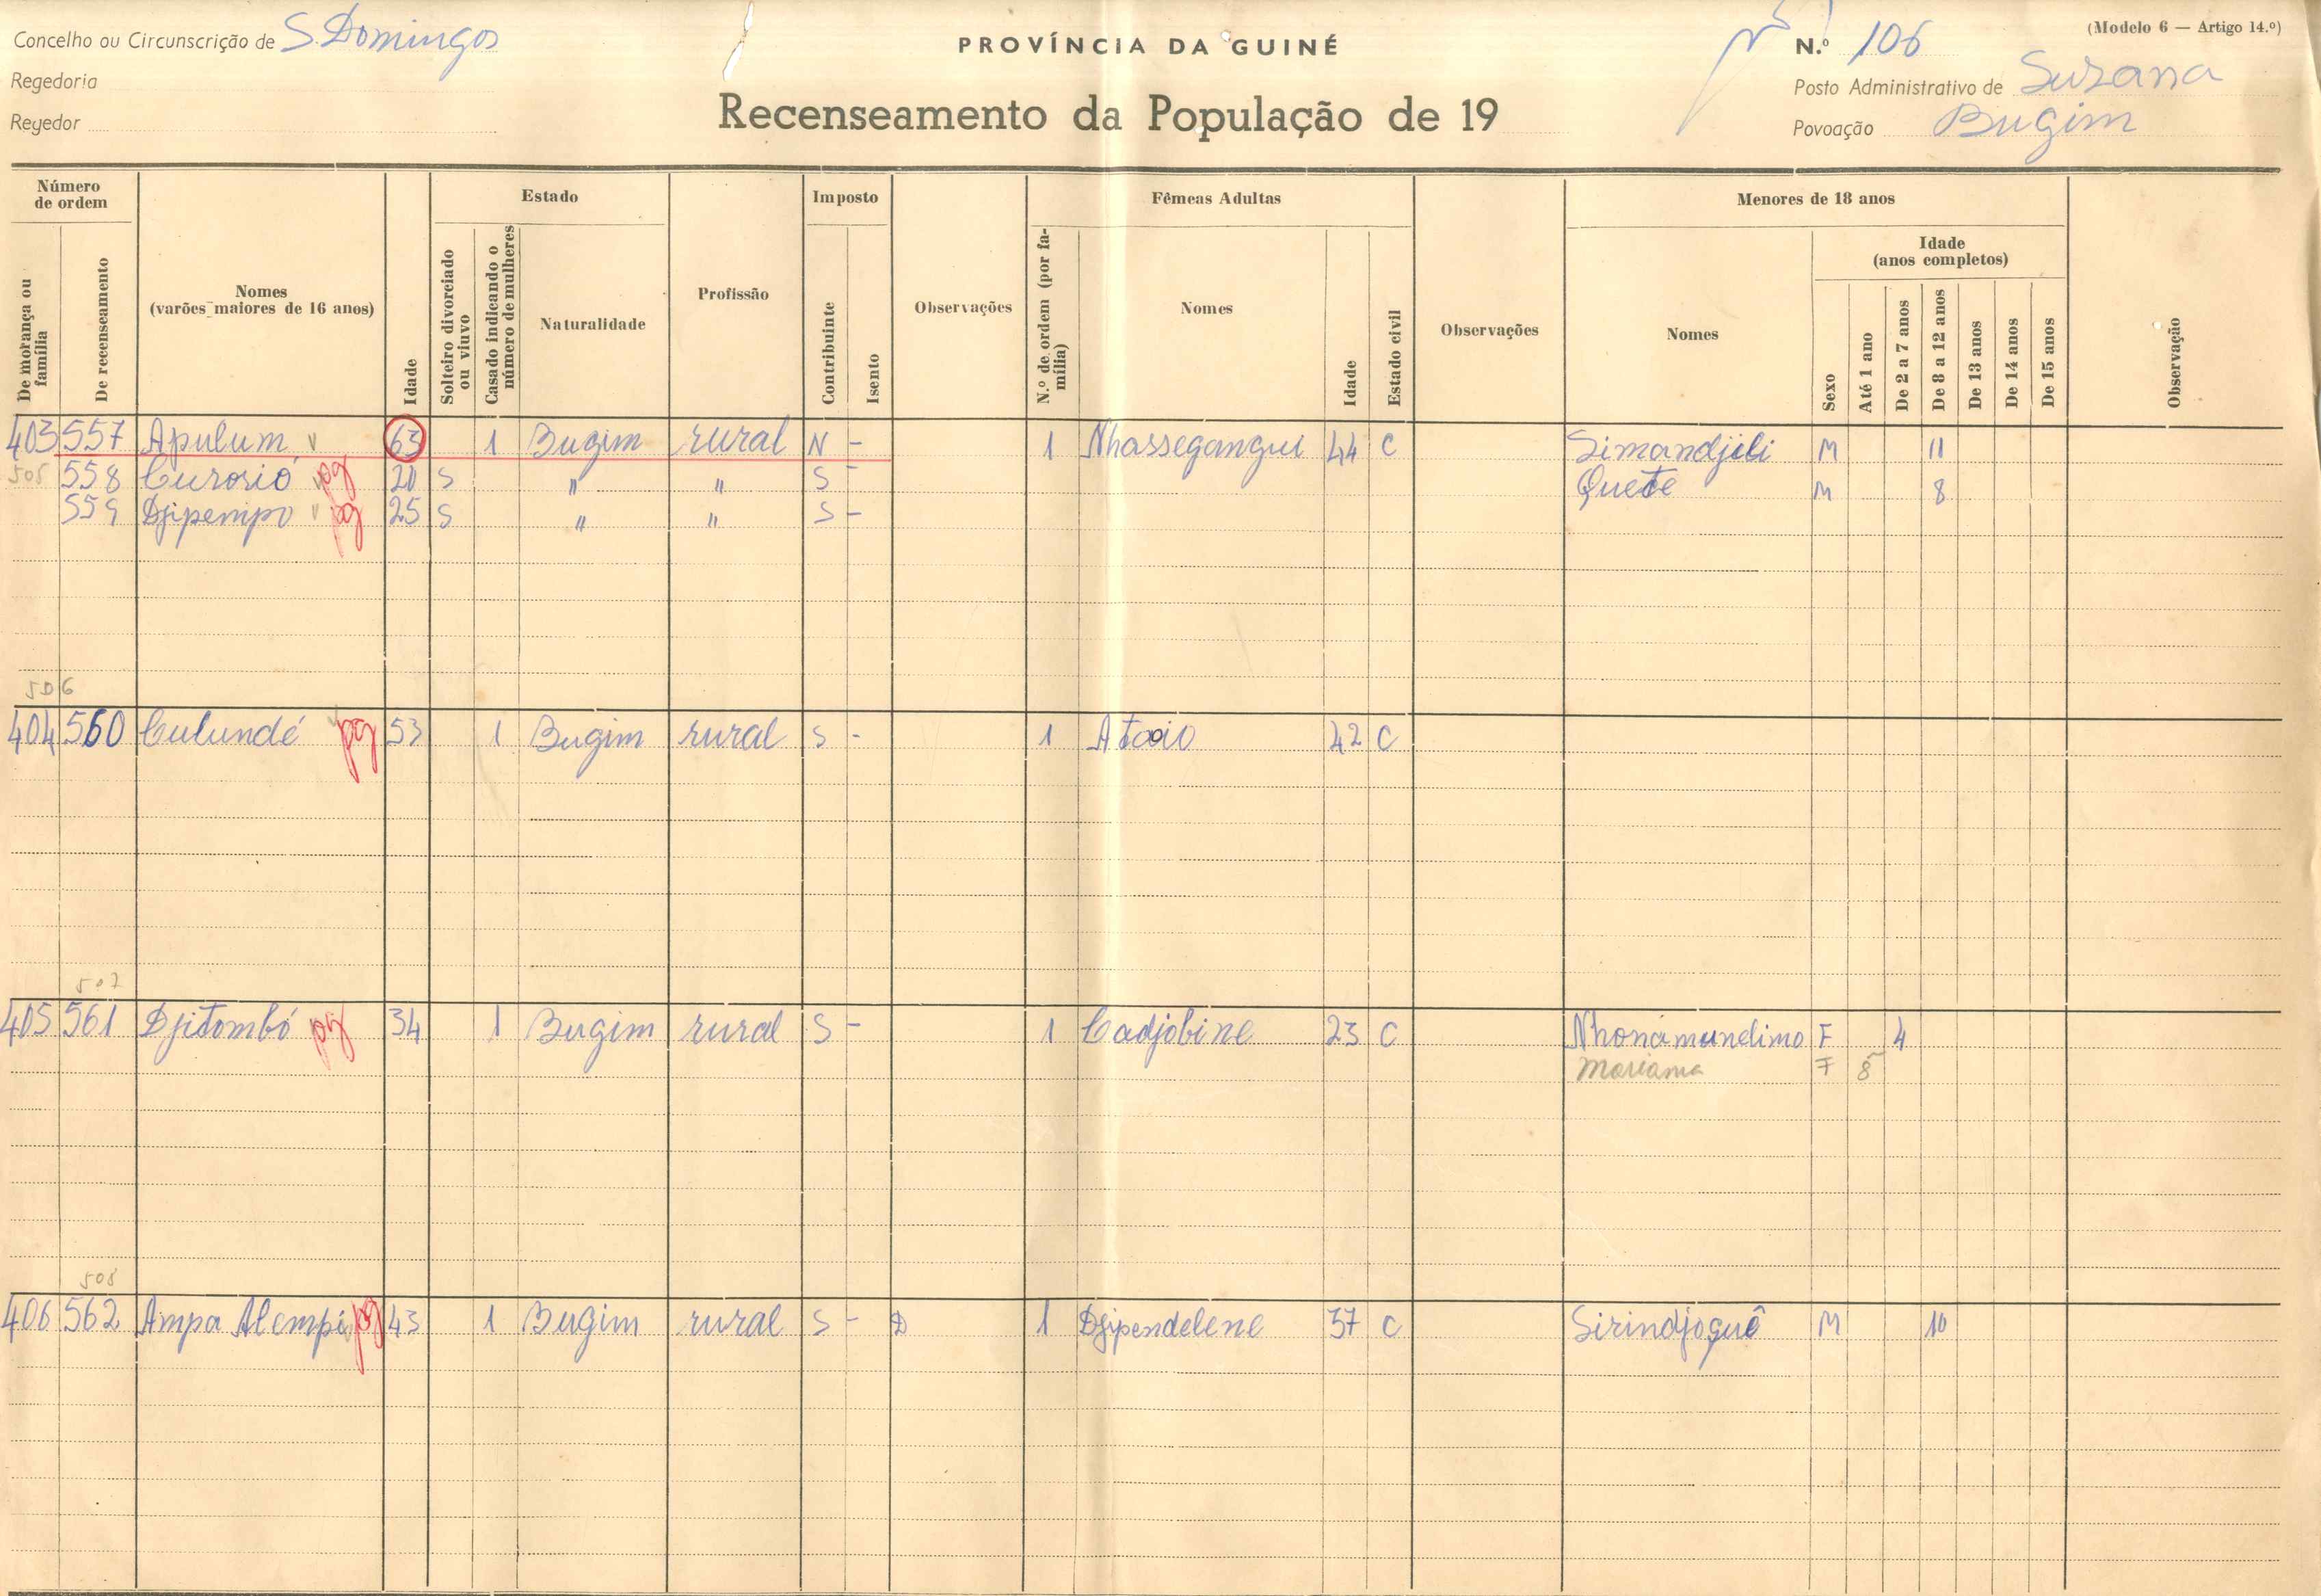 Concelho ou Circunscrição de S. Domingos
Regedoria
Regedor
PROVÍNCIA DA GUINÉ
Recenseamento da População de 19
(Modelo 6 — Artigo 14.º)
N.º 106
Posto Administrativo de Suzana
Povoação Bugim
Número de ordem
De morança ou família
De recenseamento
Nomes
(varões maiores de 16 anos)
Idade
Estado
Solteiro divorciado ou viuvo
Casado indicando o número de mulheres
Naturalidade
Profissão
Imposto
Contribuinte
Isento
Observações
Fêmeas Adultas
N.º de ordem (por família)
Nomes
Idade
Estado civil
Observações
Menores de 18 anos
Nomes
Sexo
Idade
(anos completos)
Até 1 ano
De 2 a 7 anos
De 8 a 12 anos
De 13 anos
De 14 anos
De 15 anos
Observação
403 557 Apulum v 63 1 Bugim rural N - 1 Nhassegangui 44 C Simandjibi M 11
505 558 Curosió v pg 20 S " " S - Quete M 8
559 Djipempo v pg 25 S " " S -
506
404 560 Culundé pg 53 1 Bugim rural S - 1 Ataio 42 C
507
405 561 Djitombó pg 34 1 Bugim rural S - 1 Cadjobine 23 C Nhonamundimo F 4
Mariama F 8
508
406 562 Ampa Alempi pg 43 1 Bugim rural S - D 1 Djipendelene 37 C Sirindjoguê M 10